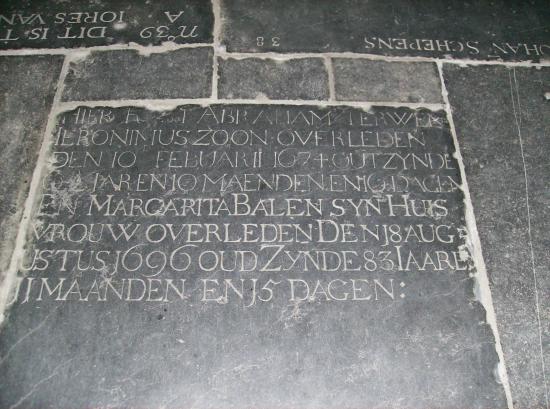 DIT IS T
IORES VAN
A
nº 39
38
OHAN SCHEPENS
HIER ABRAHAM TERWE
IERONIMUS ZOON OVERLEDEN
DEN 10 FEBUARII 1674 OUT ZYNDE
IAREN 10 MAENDEN EN 16 DAGEN
EN MARGARITA BALEN SYN HUIS
VROUW OVERLEDEN DEN 18 AUG
USTUS 1696 OUD ZYNDE 83 IAARE
11 MAANDEN EN 15 DAGEN: